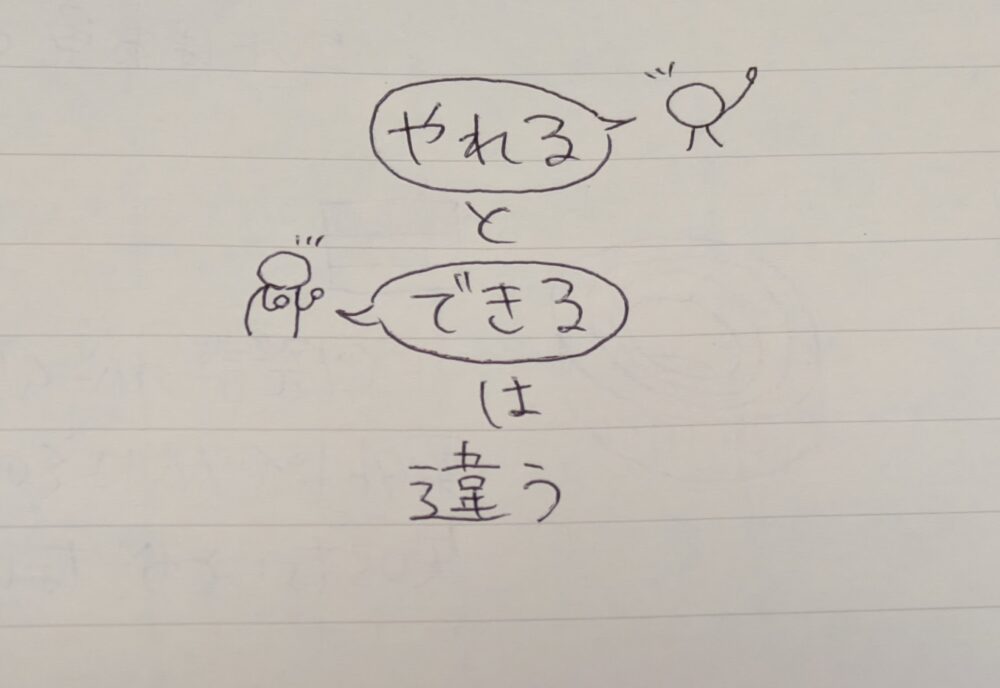 やれる
と
できる
は
違う